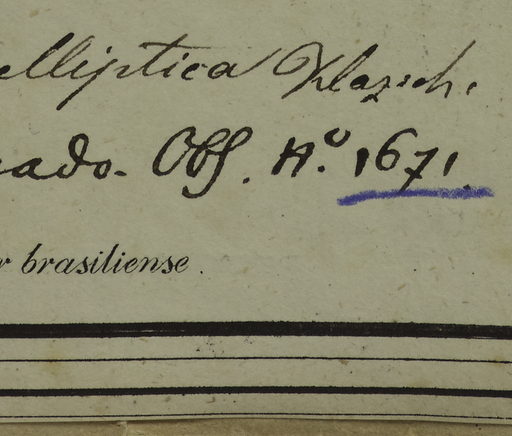 elliptica Klazsch.
ado. Obs. N.º 1671.
r brasiliense.